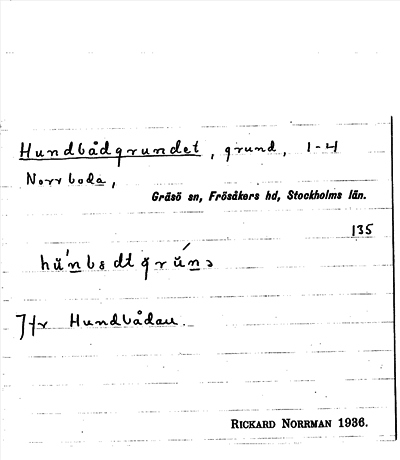 Hundbådgrundet, grund, 1-4
Norrboda,
Gräsö sn, Frösåkers hd, Stockholms län.
135
Jfr Hundbådan.
RICKARD NORRMAN 1936.